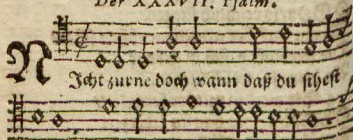 Der XXXVII. Psalm.
NIcht zurne doch wann daß du sihest